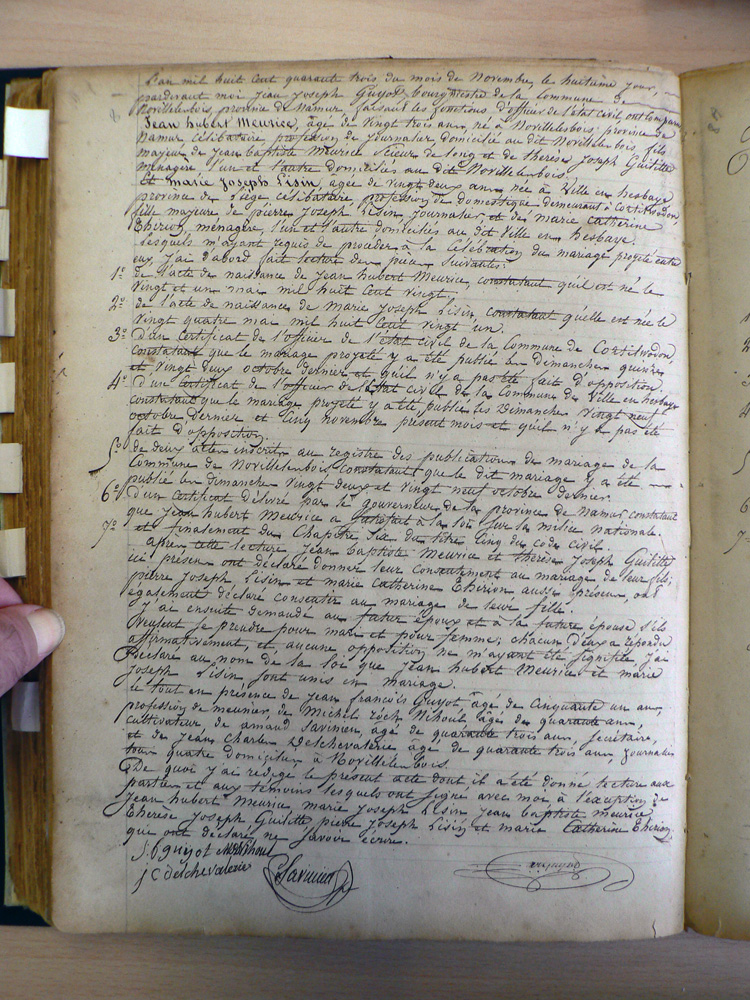 L'an mil huit Cent quarante trois du mois de Novembre, le huitieme jour,
pardevant moi Jean Joseph Guyot bourgmestre de la Commune de
Noville les bois, province de Namur, faisant les fonctions d'officier de l'état civil, ont Comparu
Jean hubert Meurice, âgé de Vingt trois ans, né à Noville les bois province de
Namur Célibataire, profession de Journalier domicilié au dit Noville les bois fils
majeur de Jean baptiste Meurice Scieur de long et de thérèse Joseph Guilitte
ménagere l'un et l'autre domiciliés au dit Noville les bois.
Et Marie Joseph Lisin, agée de Vingt deux ans, née à Ville en hesbaye
province de Liége célibataire, profession de domestique demeurant à Cortilwodon,
fille majeure de pierre Joseph Lisin, Journalier, et de marie Catherine
Therion, ménagere, l'un et l'autre domiciliés au dit Ville en hesbaye.
Lesquels m'ayant requis de procéder à la Célébration du mariage projeté entre
eux, j'ai d'abord fait lecture des pièces Suivantes:
1.° de l'acte de naissance de Jean hubert Meurice, constatant qu'il est né le
Vingt et un mai mil huit Cent Vingt.
2.° de l'acte de naissance, de Marie Joseph Lisin, Constatant qu'elle est née le
Vingt quatre mai mil huit Cent Vingt un.
3.° d'un Certificat de l'officier de l'état civil de la Commune de Cortilwodon,
Constatant que le mariage projeté y a été publié les dimanches quinze
et Vingt deux octobre dernier et qu'il n'y a pas été fait d'opposition.
4.° d'un Certificat de l'officier de l'Etat civil de la Commune de Ville en hesbaye
constatant que le mariage projeté y a été publié les Dimanche Vingt neuf
octobre Dernier et Cinq novembre présent mois et qu'il n'y a pas été
fait d'opposition.
5.° de deux actes inscrits au registre des publications de mariage de la
Commune de Noville les bois Constatant que le dit mariage y a été
publié les dimanche Vingt deux et Vingt neuf octobre dernier.
6.° d'un Certificat délivré par le gouverneur de la province de Namur constatant
que Jean hubert Meurice a Satisfait à la loi sur la milice Nationale.
7.° et finalement du Chapitre Six du titre Cinq du code civil.
Après cette lecture Jean baptiste Meurice et thérèse Joseph Guilitte
ici présens ont déclaré donner leur Consentement au mariage de leur fils;
pierre Joseph Lisin et marie Catherine Therion, aussi présens, ont
également déclaré consentir au mariage de leur fille.
J'ai ensuite demandé au futur époux et à la future épouse s'ils
Veulent se prendre pour mari et pour femme; chacun d'eux a répondu
affirmativement, et aucune opposition ne m'ayant été signifiée j'ai
Déclaré au nom de la loi que Jean hubert Meurice et marie
Joseph Lisin sont unis en mariage.
le tout en présence de Jean françois Guyot, âgé de Cinquante un ans,
profession de meunier, de Michel roch Nihoul âgé de quarante ans,
Cultivateur de amand Savinien, âgé de quarante trois ans, Secrétaire,
et de Jean Charles Delschevalerie âgé de quarante trois ans, Journalier
tous quatre domiciliés à Noville les bois.
De quoi j'ai rédigé le présent acte dont il a été donné lecture aux
parties et aux témoins lesquels ont signé avec moi à l'exception de
Jean hubert Meurice, marie Joseph Lisin Jean baptiste meurice
Thérèse Joseph Guilitte pierre Joseph Lisin et marie Catherine Therion,
que ont déclaré ne Savoir écrire.
J f guyot MRNihoul
j c delschevalerie Savinien